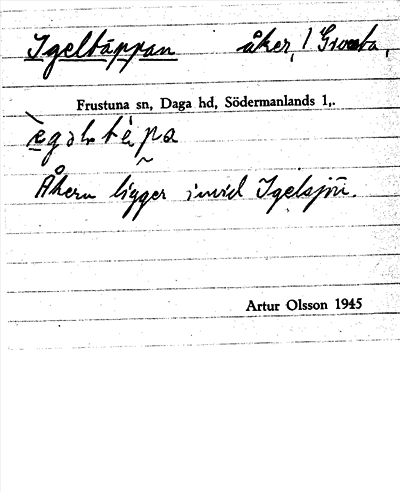 Igeltäppan åker, 1
Frustuna sn, Daga hd, Södermanlands l,.
Åkern ligger invid Igelsjön.
Artur Olsson 1945